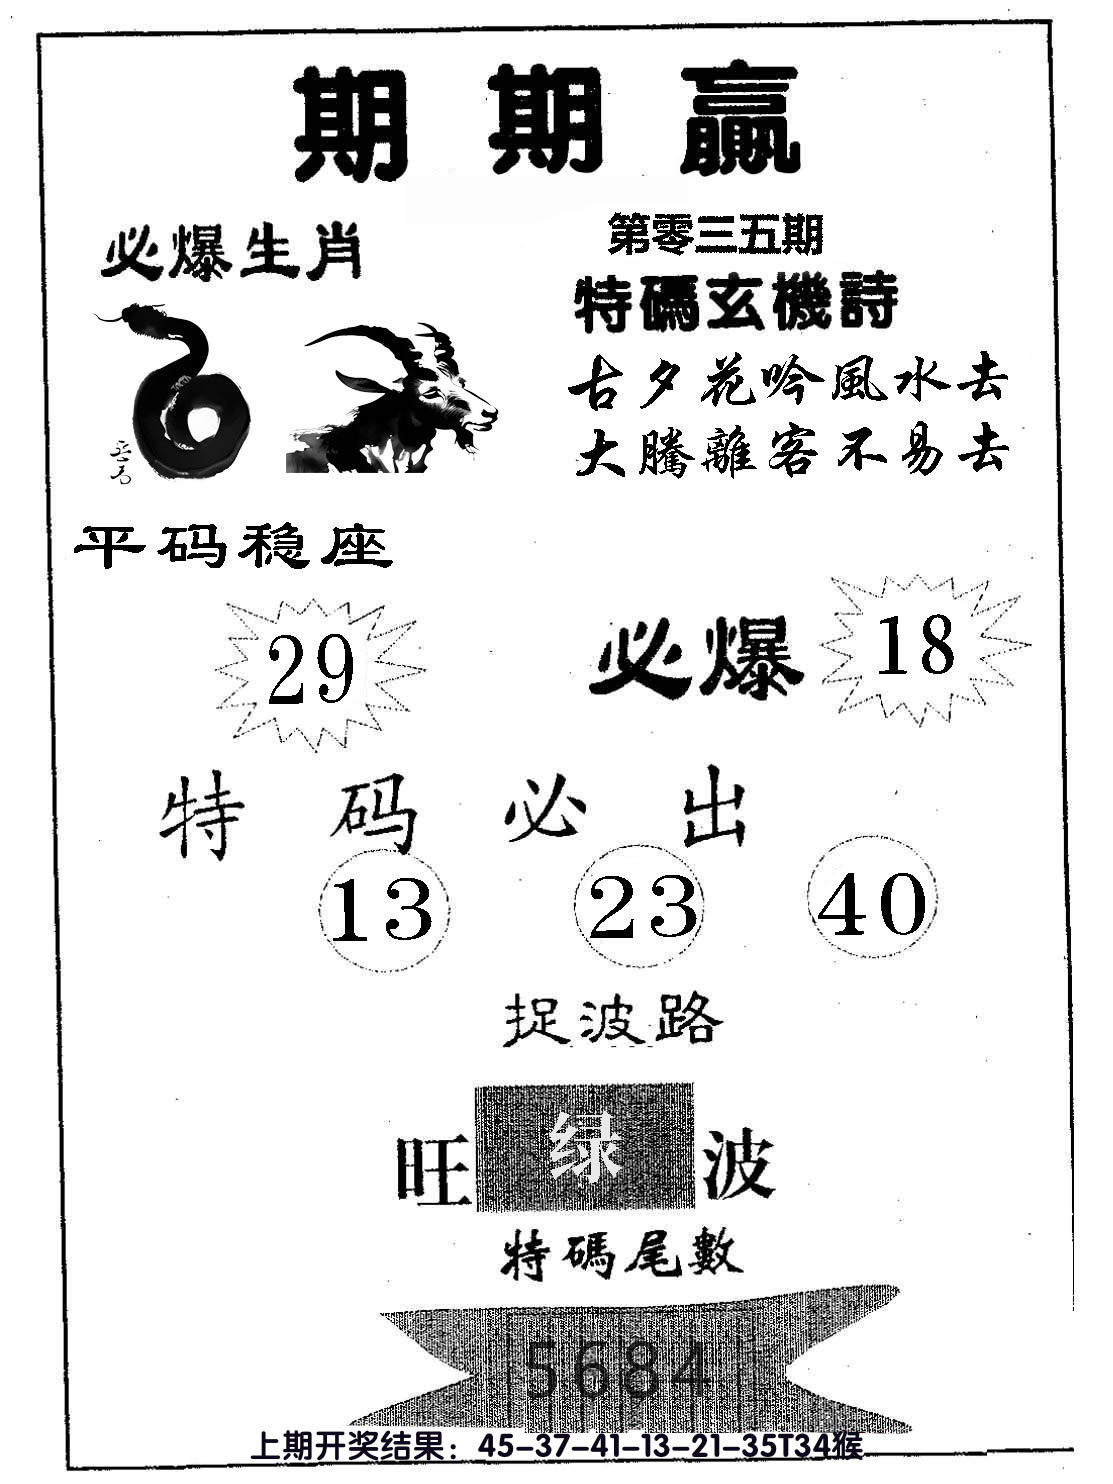 期期赢
必爆生肖
第零三五期
特碼玄機詩
古夕花吟風水去
大騰離客不易去
平码稳座
29
必爆 18
特码必出
13 23 40
捉波路
旺 绿 波
特碼尾數
5684
上期开奖结果：45-37-41-13-21-35T34猴